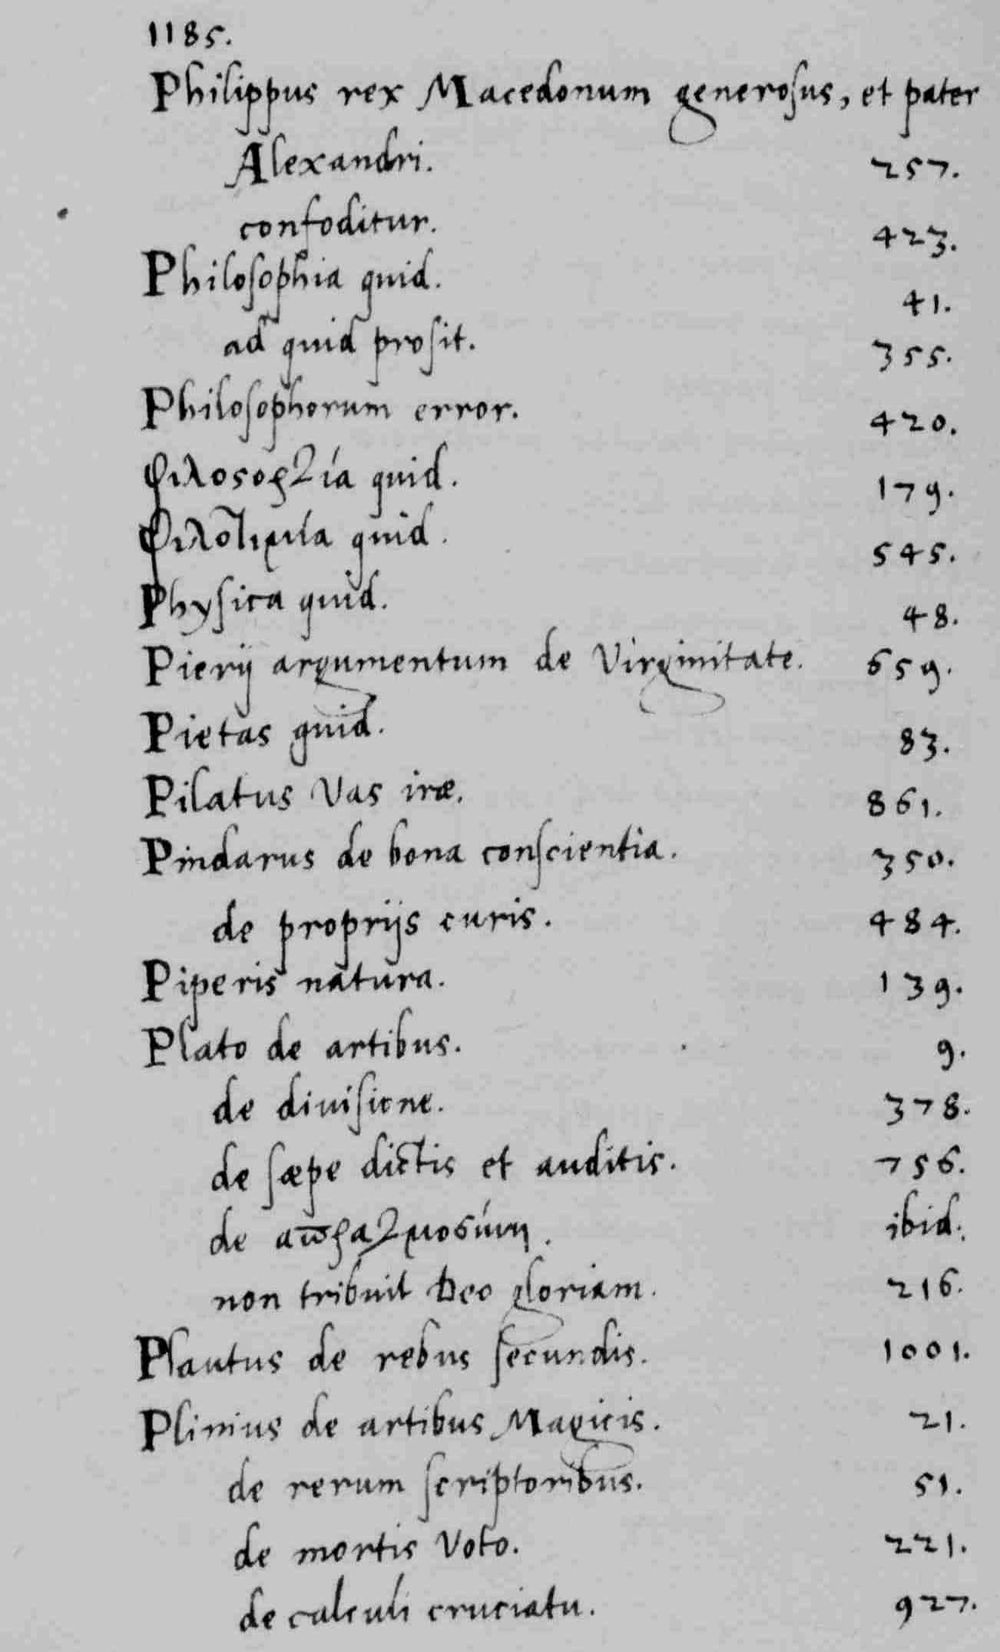 1185.
Philippus rex Macedonum generosus, et pater
Alexandri. 257.
confoditur. 423.
Philosophia quid. 41.
ad quid prosit. 355.
Philosophorum error. 420.
φιλοϛοργία quid. 179.
Φιλοτιμία quid. 545.
Physica quid. 48.
Pierij argumentum de Virginitate. 659.
Pietas quid. 83.
Pilatus Vas iræ. 861.
Pindarus de bona conscientia. 350.
de proprijs curis. 484.
Piperis natura. 139.
Plato de artibus. 9.
de diuisione. 378.
de sæpe dictis et auditis. 756.
de αϖραγμοσύνη. ibid.
non tribuit Deo gloriam. 216.
Plautus de rebus secundis. 1001.
Plinius de artibus Magicis. 21.
de rerum scriptoribus. 51.
de mortis Voto. 221.
de calculi cruciatu. 927.